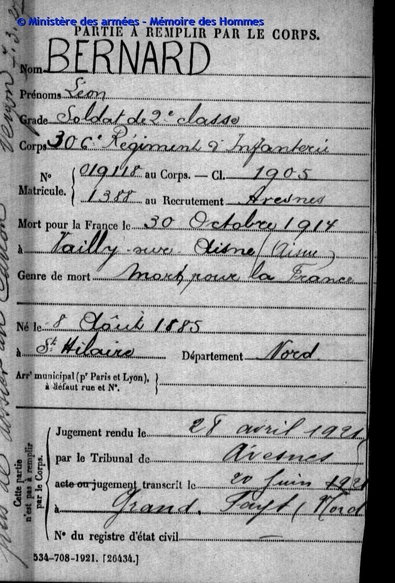 © Ministère des armées - Mémoire des Hommes
PARTIE À REMPLIR PAR LE CORPS.
Nom BERNARD
Prénoms Léon
Grade Soldat de 2e classe
Corps 306e Régiment d'Infanterie
N° Matricule. { 019118 au Corps. — Cl. 1905
1388 au Recrutement Avesnes
Mort pour la France le 30 Octobre 1914
à Vailly-sur Aisne (Aisne)
Genre de mort Mort pour la France
Né le 8 Août 1885
à St Hilaire Département Nord
Arrt municipal (pr Paris et Lyon),
à défaut rue et N°.
Cette partie n'est pas à remplir par le Corps.
Jugement rendu le 28 avril 1921
par le Tribunal de Avesnes
acte ou jugement transcrit le 20 juin 1921
à Grand Fayt (Nord
N° du registre d'état civil —
534-708-1921. [26434.]